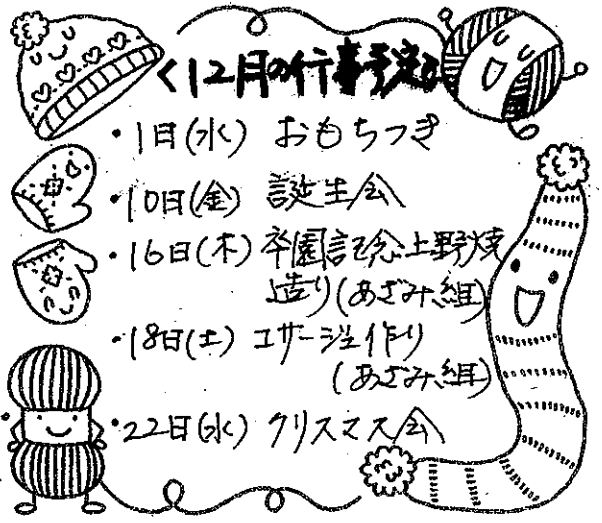 く12月の行事予定る
・1日(水) おもちつき
・10日(金) 誕生会
・16日(木) 卒園記念上野焼
造り(あざみ組)
・18日(土) コサージュ作り
(あざみ組)
・22日(水) クリスマス会